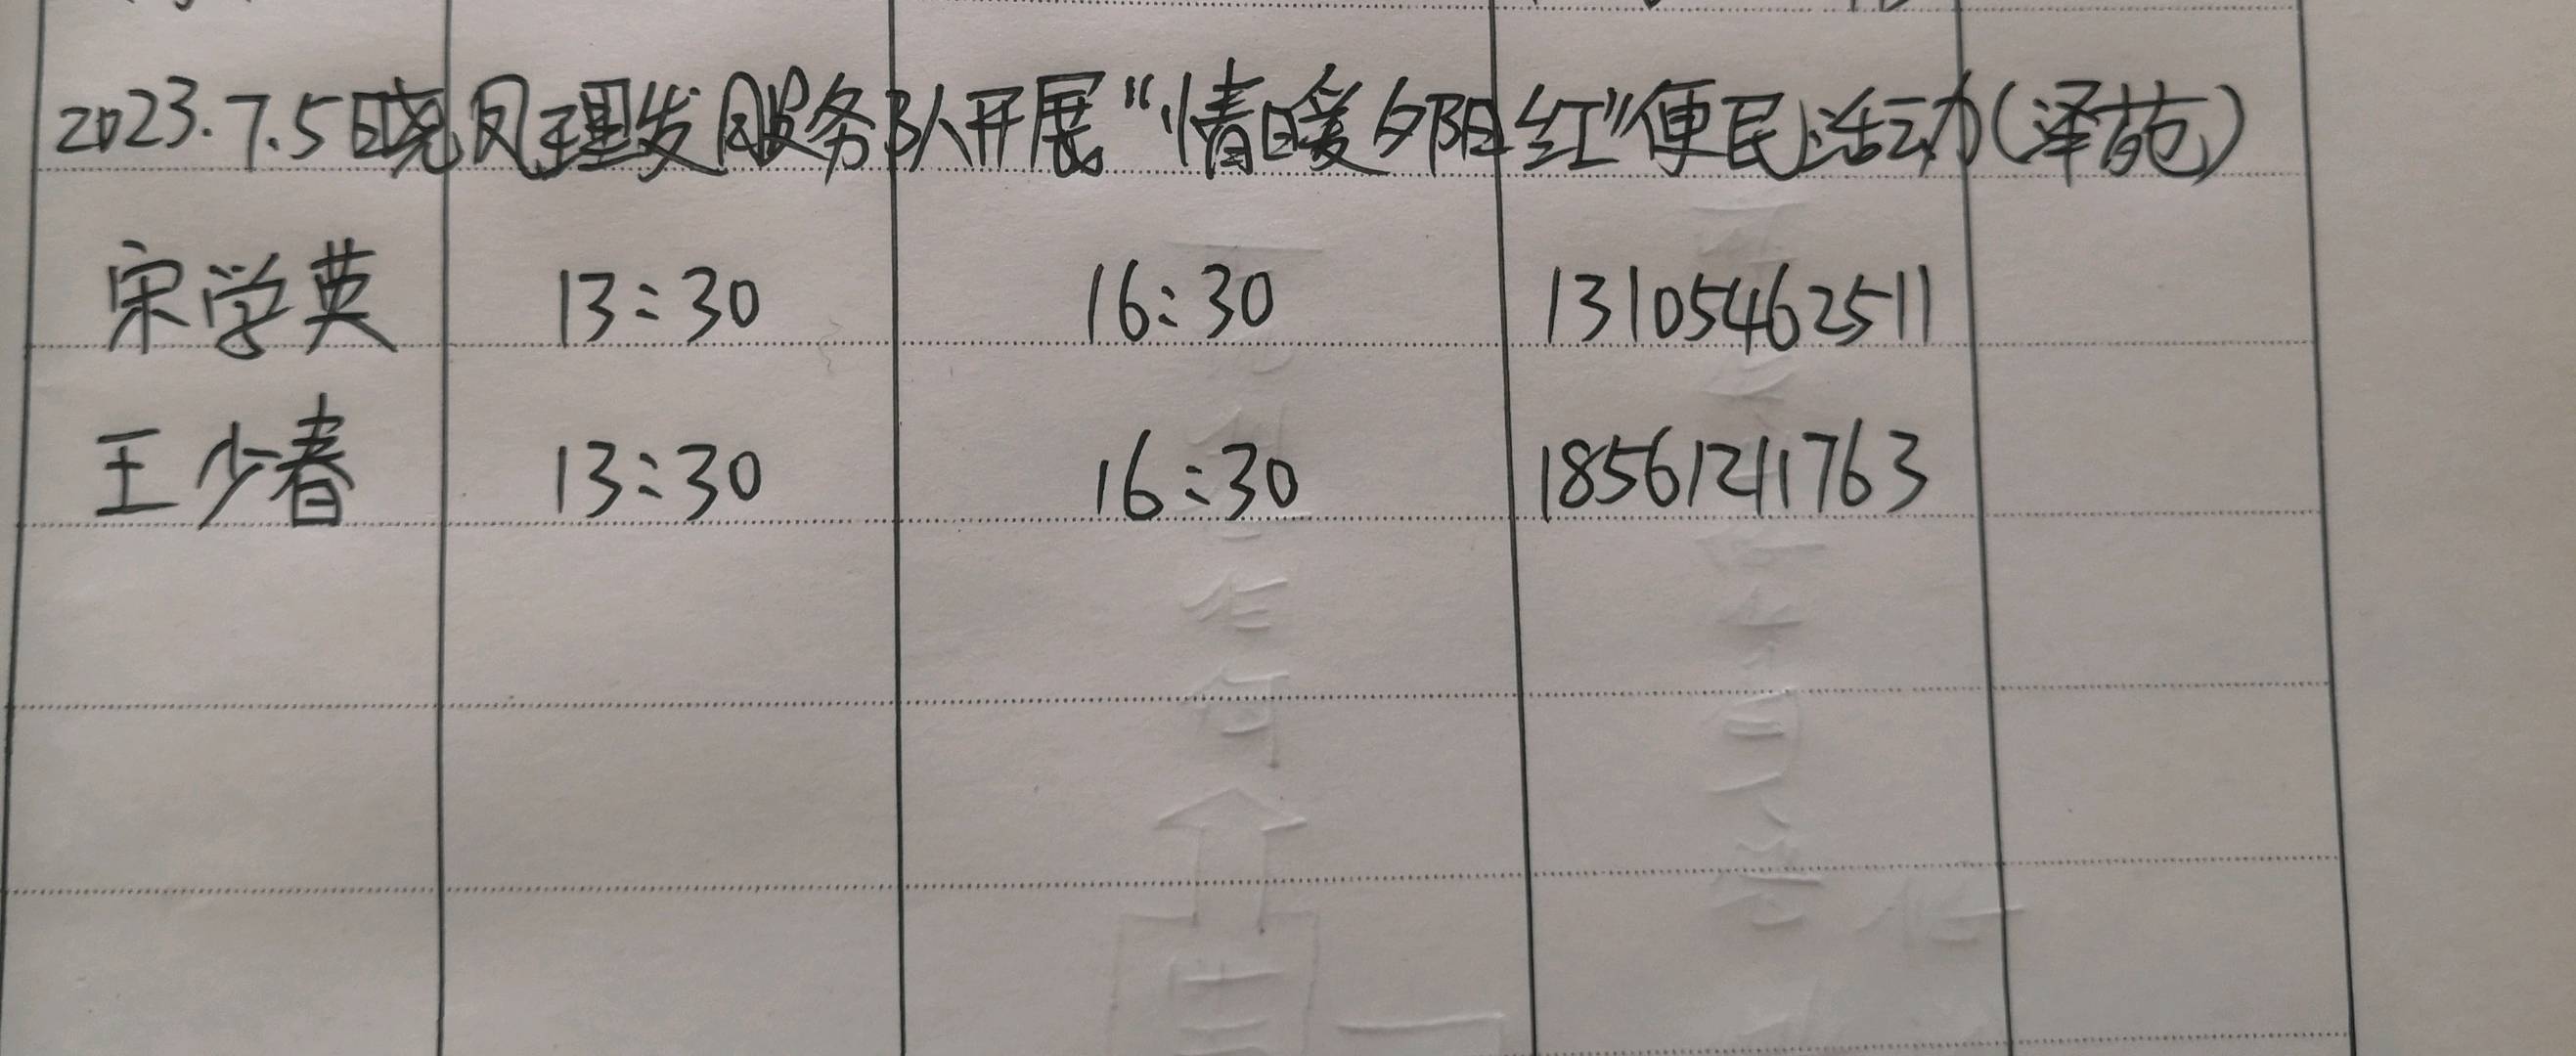 2023.7.5日晓凤理发服务队开展“情暖夕阳红”便民活动(泽苑)
宋学英 13:30 16:30 13105462511
王少春 13:30 16:30 18561211763